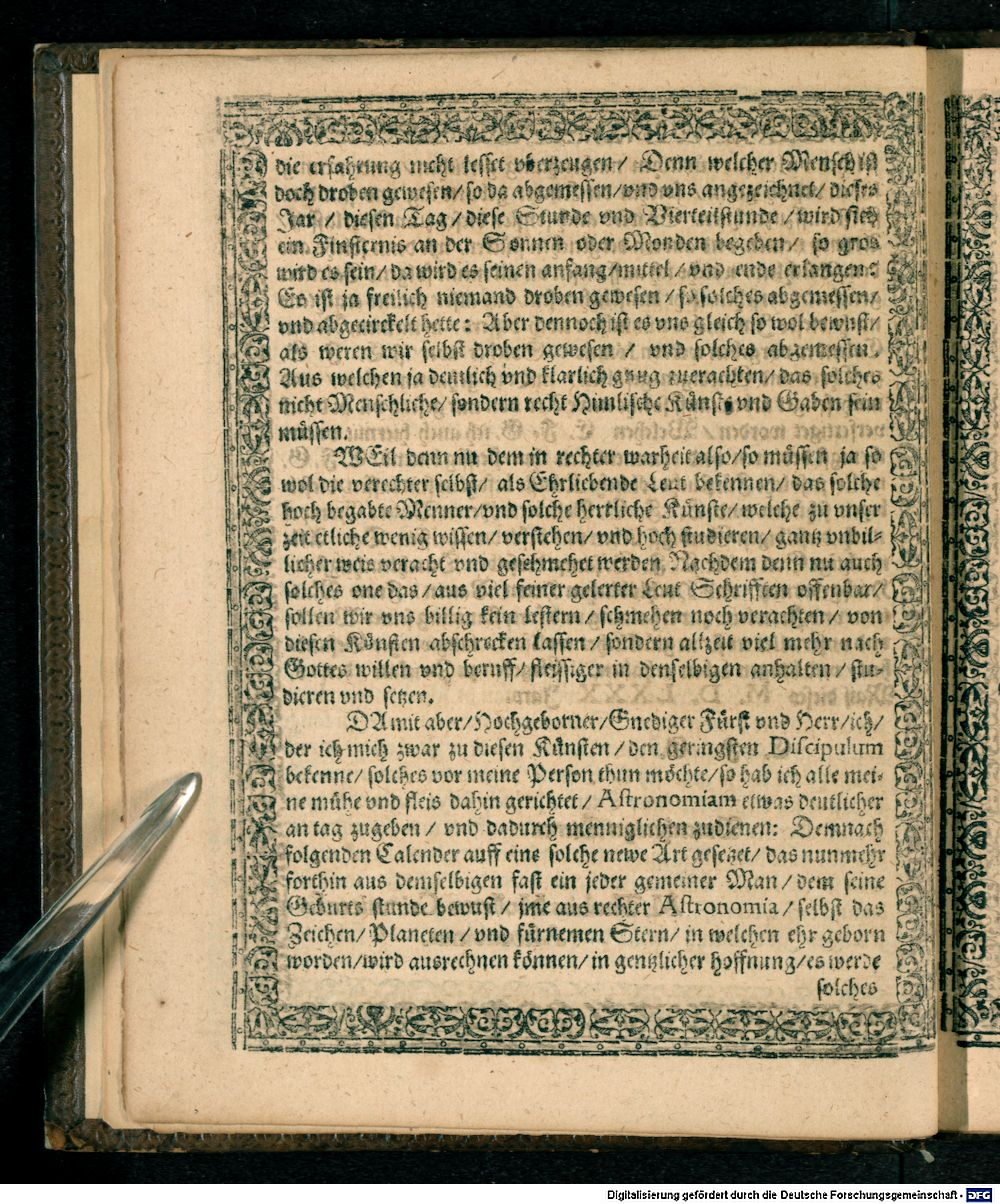 die erfahrung nicht lesset vberzeugen/ Denn welcher Mensch ist
doch droben gewesen/so da abgemessen/vnd vns angezeichnet/ dieses
Jar / diesen Tag/diese Stunde vnd Vierteilstunde/wird sich
ein Finsternis an der Sonnen oder Monden begeben/ so gros
wird es sein/da wird es seinen anfang/mittel/vnd ende erlangen?
Es ist ja freilich niemand droben gewesen/so solches abgemessen/
vnd abgecirckelt hette: Aber dennoch ist es vns gleich so wol bewust/
als weren wir selbst droben gewesen / vnd solches abgemessen.
Aus welchen ja deutlich vnd klarlich gnug zuerachten/das solches
nicht Menschliche/sondern recht Himlische Künst vnd Gaben sein
müssen.
WEil denn nu dem in rechter warheit also/so müssen ja so
wol die verechter selbst/ als Ehrliebende Leut bekennen/das solche
hoch begabte Menner/vnd solche herrliche Künste/welche zu vnser
zeit etliche wenig wissen/verstehen/vnd hoch studieren/gantz vnbil-
licher weis veracht vnd geschmehet werden Nachdem denn nu auch
solches one das/aus viel feiner gelerter Leut Schrifften offenbar/
sollen wir vns billig kein lestern/schmehen noch verachten/von
diesen Künsten abschrecken lassen/sondern allzeit viel mehr nach
Gottes willen vnd beruff/fleissiger in denselbigen anhalten/stu-
dieren vnd setzen.
DAmit aber/Hochgeborner/Gnediger Fürst vnd Herr/ich/
der ich mich zwar zu diesen Künsten/den geringsten Discipulum
bekenne/solches vor meine Person thun möchte/so hab ich alle mei-
ne mühe vnd fleis dahin gerichtet/Astronomiam etwas deutlicher
an tag zugeben/vnd dadurch menniglichen zudienen: Demnach
folgenden Calender auff eine solche newe Art gesetzet/das nunmehr
forthin aus demselbigen fast ein jeder gemeiner Man/dem seine
Geburts stunde bewust/jme aus rechter Astronomia/selbst das
Zeichen/Planeten/vnd fürnemen Stern/in welchen ehr geborn
worden/wird ausrechnen können/in gentzlicher hoffnung/es werde
solches
Digitalisierung gefördert durch die Deutsche Forschungsgemeinschaft - DFG